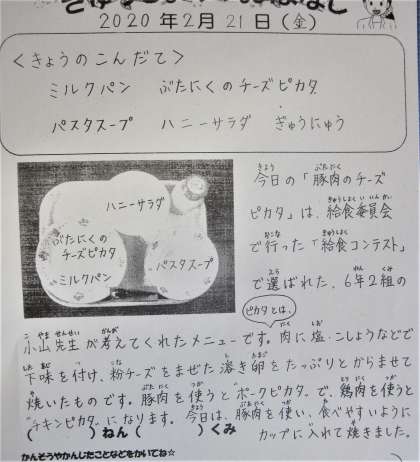 2020年2月21日(金)
<きょうのこんだて>
ミルクパン ぶたにくのチーズピカタ
パスタスープ ハニーサラダ ぎゅうにゅう
ハニーサラダ
ぶたにくの
チーズピカタ
ミルクパン
パスタスープ
今日の「豚肉のチーズ
ピカタ」は、給食委員会
で行った「給食コンテスト」
で選ばれた、6年2組の
ピカタとは、
小山先生が考えてくれたメニューです。肉に塩・こしょうなどで
下味を付け、粉チーズをまぜた溶き卵をたっぷりとからませて
焼いたものです。豚肉を使うと"ポークピカタ"で、鶏肉を使うと
"チキンピカタ"になります。今日は、豚肉を使い、食べやすいように
カップに入れて焼きました。
( )ねん( )くみ
かんそうやかんじたことなどをかいてね☆